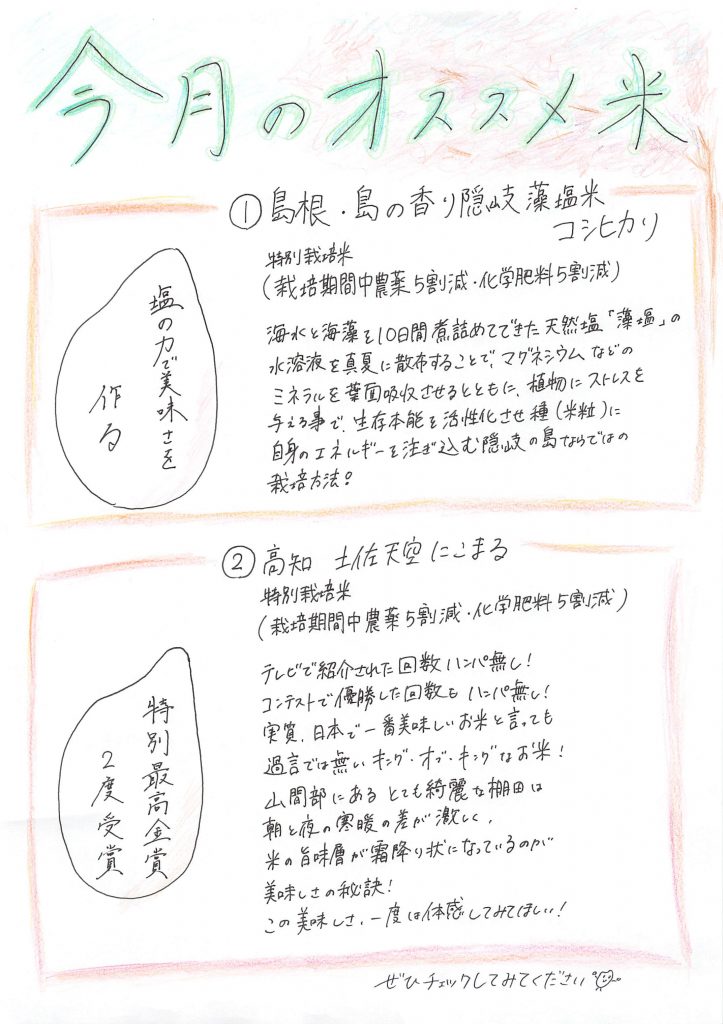 今月のオススメ米
①島根・島の香り隠岐藻塩米
コシヒカリ
特別栽培米
(栽培期間中農薬5割減・化学肥料5割減)
塩の力で美味さを
作る
海水と海藻を10日間煮詰めてできた天然塩「藻塩」の
水溶液を真夏に散布することで、マグネシウムなどの
ミネラルを葉面吸収させるとともに、植物にストレスを
与える事で、生存本能を活性化させ種(米粒)に
自身のエネルギーを注ぎ込む隠岐の島ならではの
栽培方法。
②高知 土佐天空にこまる
特別栽培米
(栽培期間中農薬5割減・化学肥料5割減)
特別最高金賞
2度受賞
テレビで紹介された回数ハンパ無し!
コンテストで優勝した回数もハンパ無し!
実質、日本で一番美味しいお米と言っても
過言では無いキング・オブ・キングなお米!
山間部にあるとても綺麗な棚田は
朝と夜の寒暖の差が激しく、
米の旨味層が霜降り状になっているのが
美味しさの秘訣!
この美味しさ、一度は体感してみてほしい!
ぜひチェックしてみてください